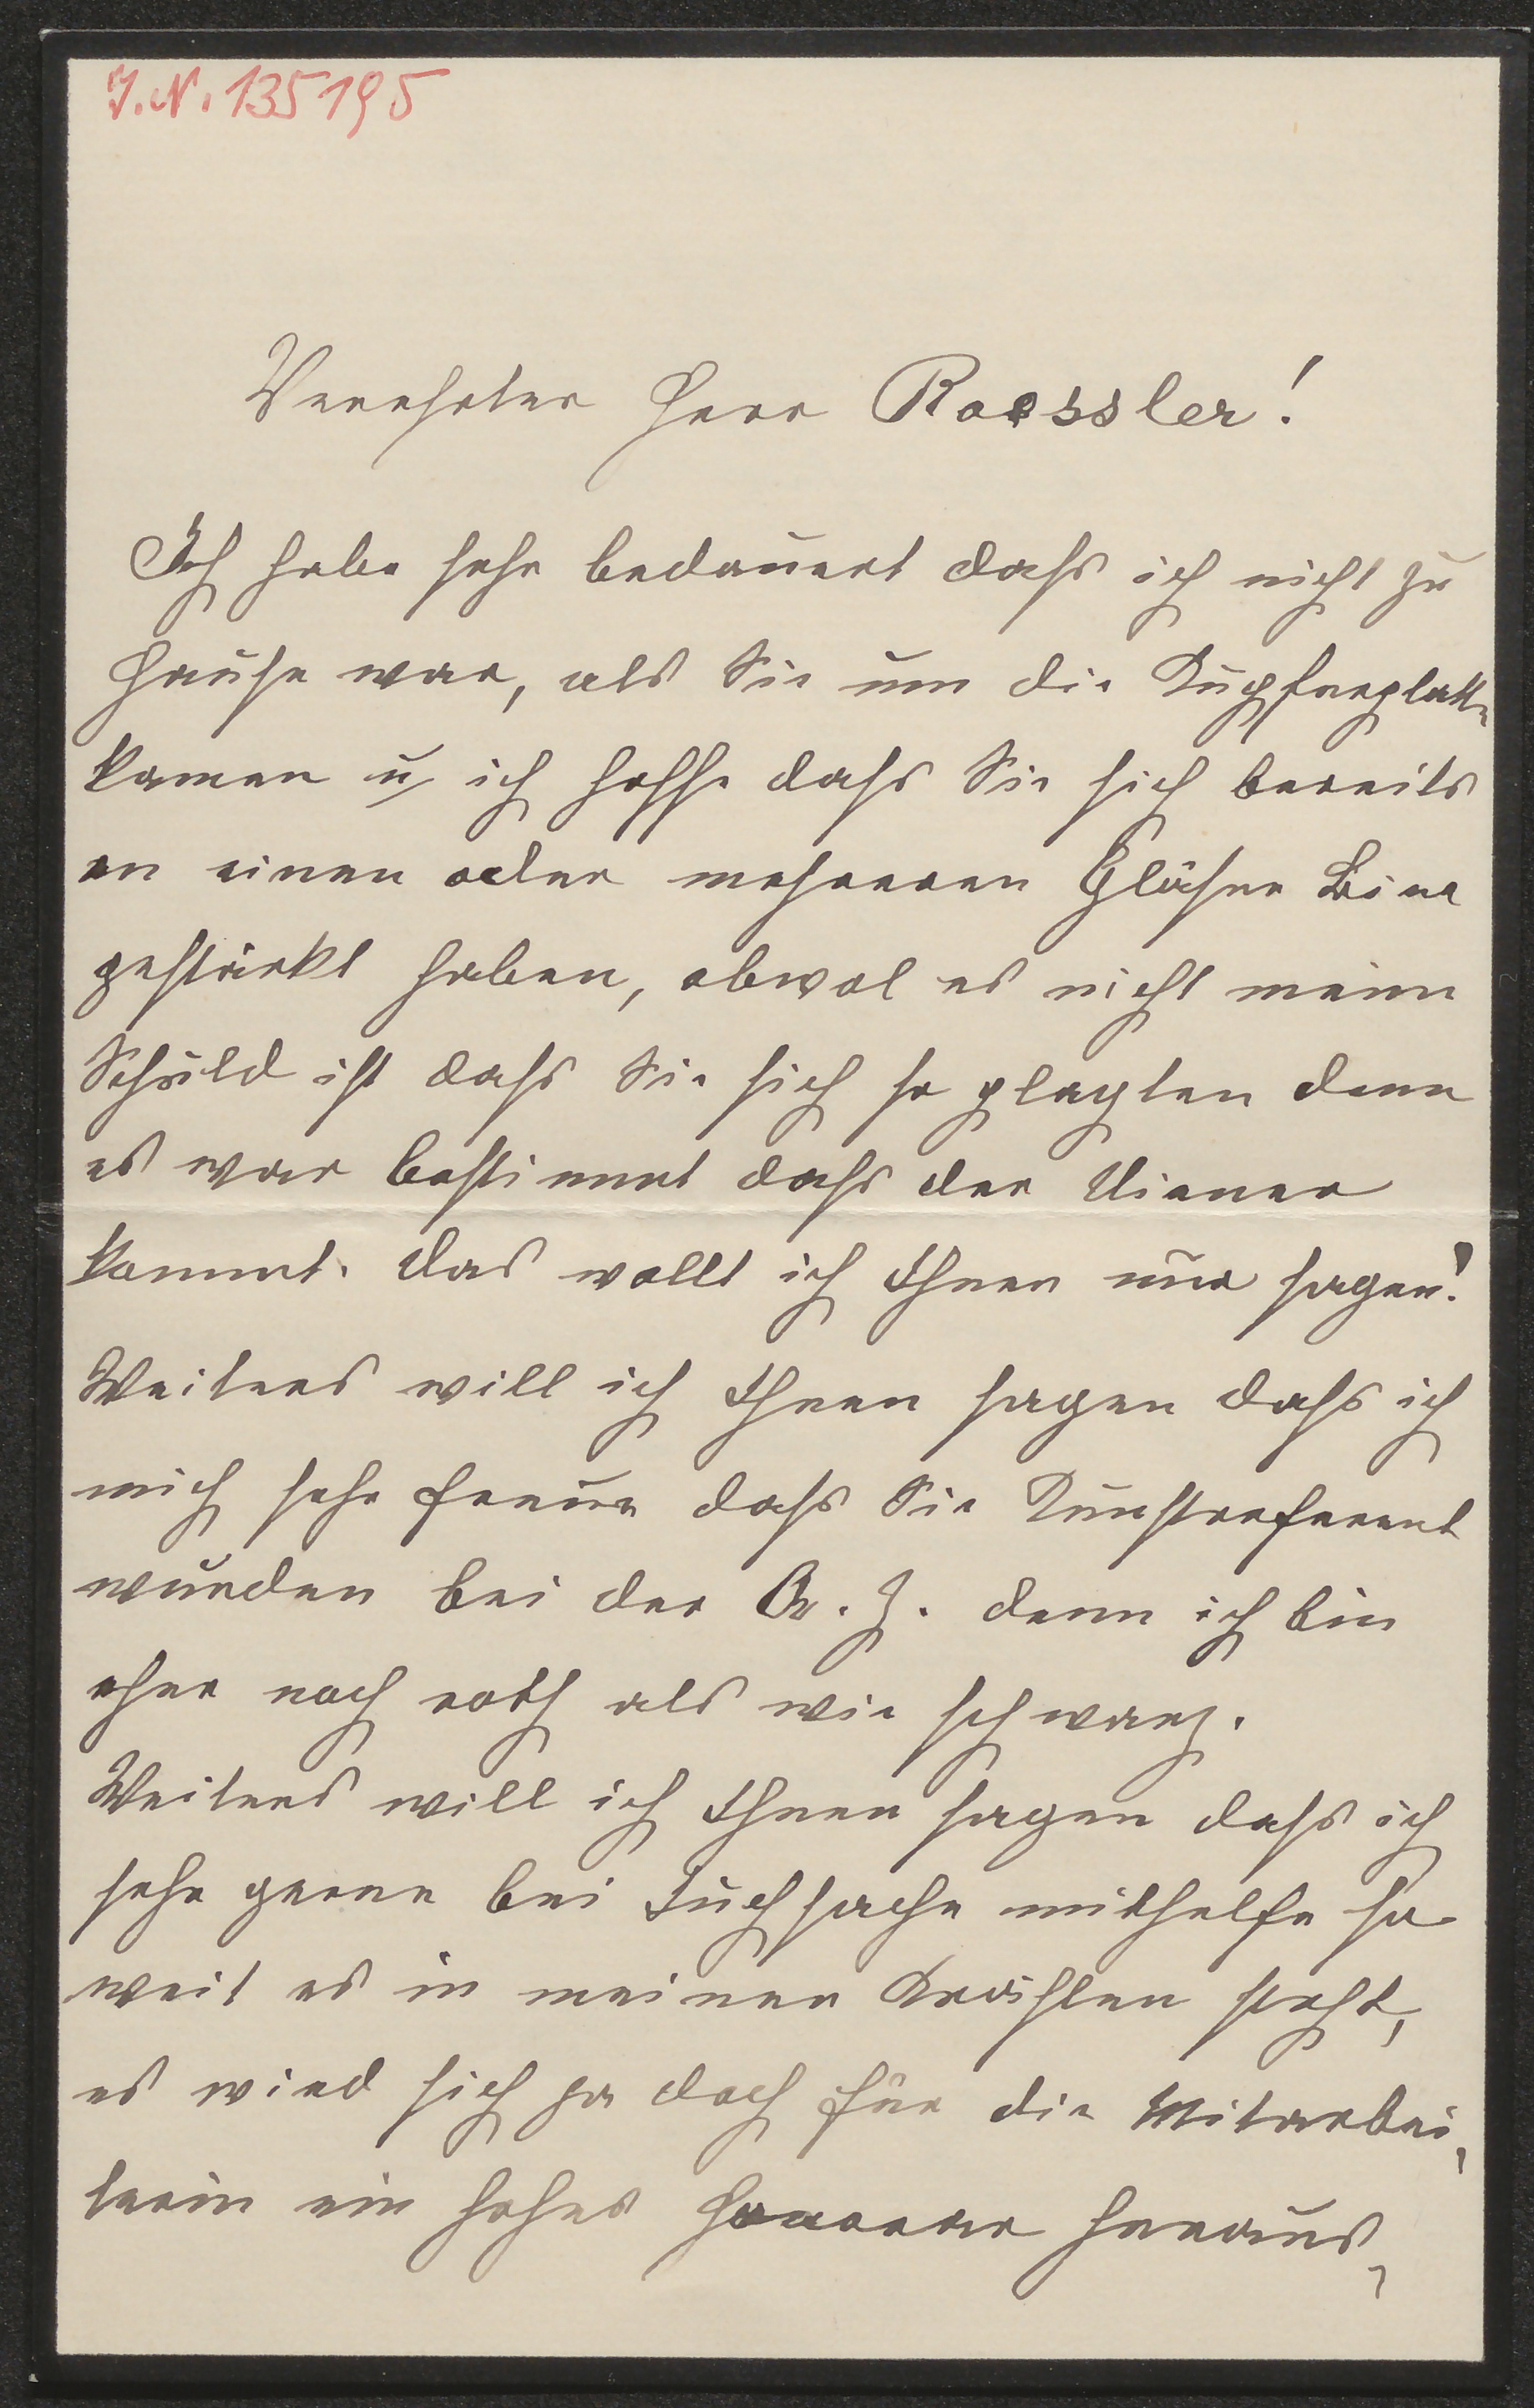 J.N. 135195
Verehrter Herr Roessler!
Ich habe sehr bedauert dass ich nicht zu
Hause war, als Sie um die Kupferplatte
kamen u ich hoffe dass Sie sich bereits
an einen oder mehreren Gläser Bier
gestärkt haben, obwol es nicht meine
Schuld ist dass Sie sich so plagten denn
es war bestimmt dass der Diener
kommt. Das wollt ich Ihnen nur sagen!
Weiters will ich Ihnen sagen dass ich
mich sehr freue dass Sie Kunstreferent
wurden bei der Ar. Z. denn ich bin
eher noch roth als wie schwarz.
Weiters will ich Ihnen sagen dass ich
sehr gerne bei Fuchssache mithelfe so
weit es in meinen Kräften steht,
es wird sich ja doch für die Mitarbei-
terin ein hohes Honorar heraus-